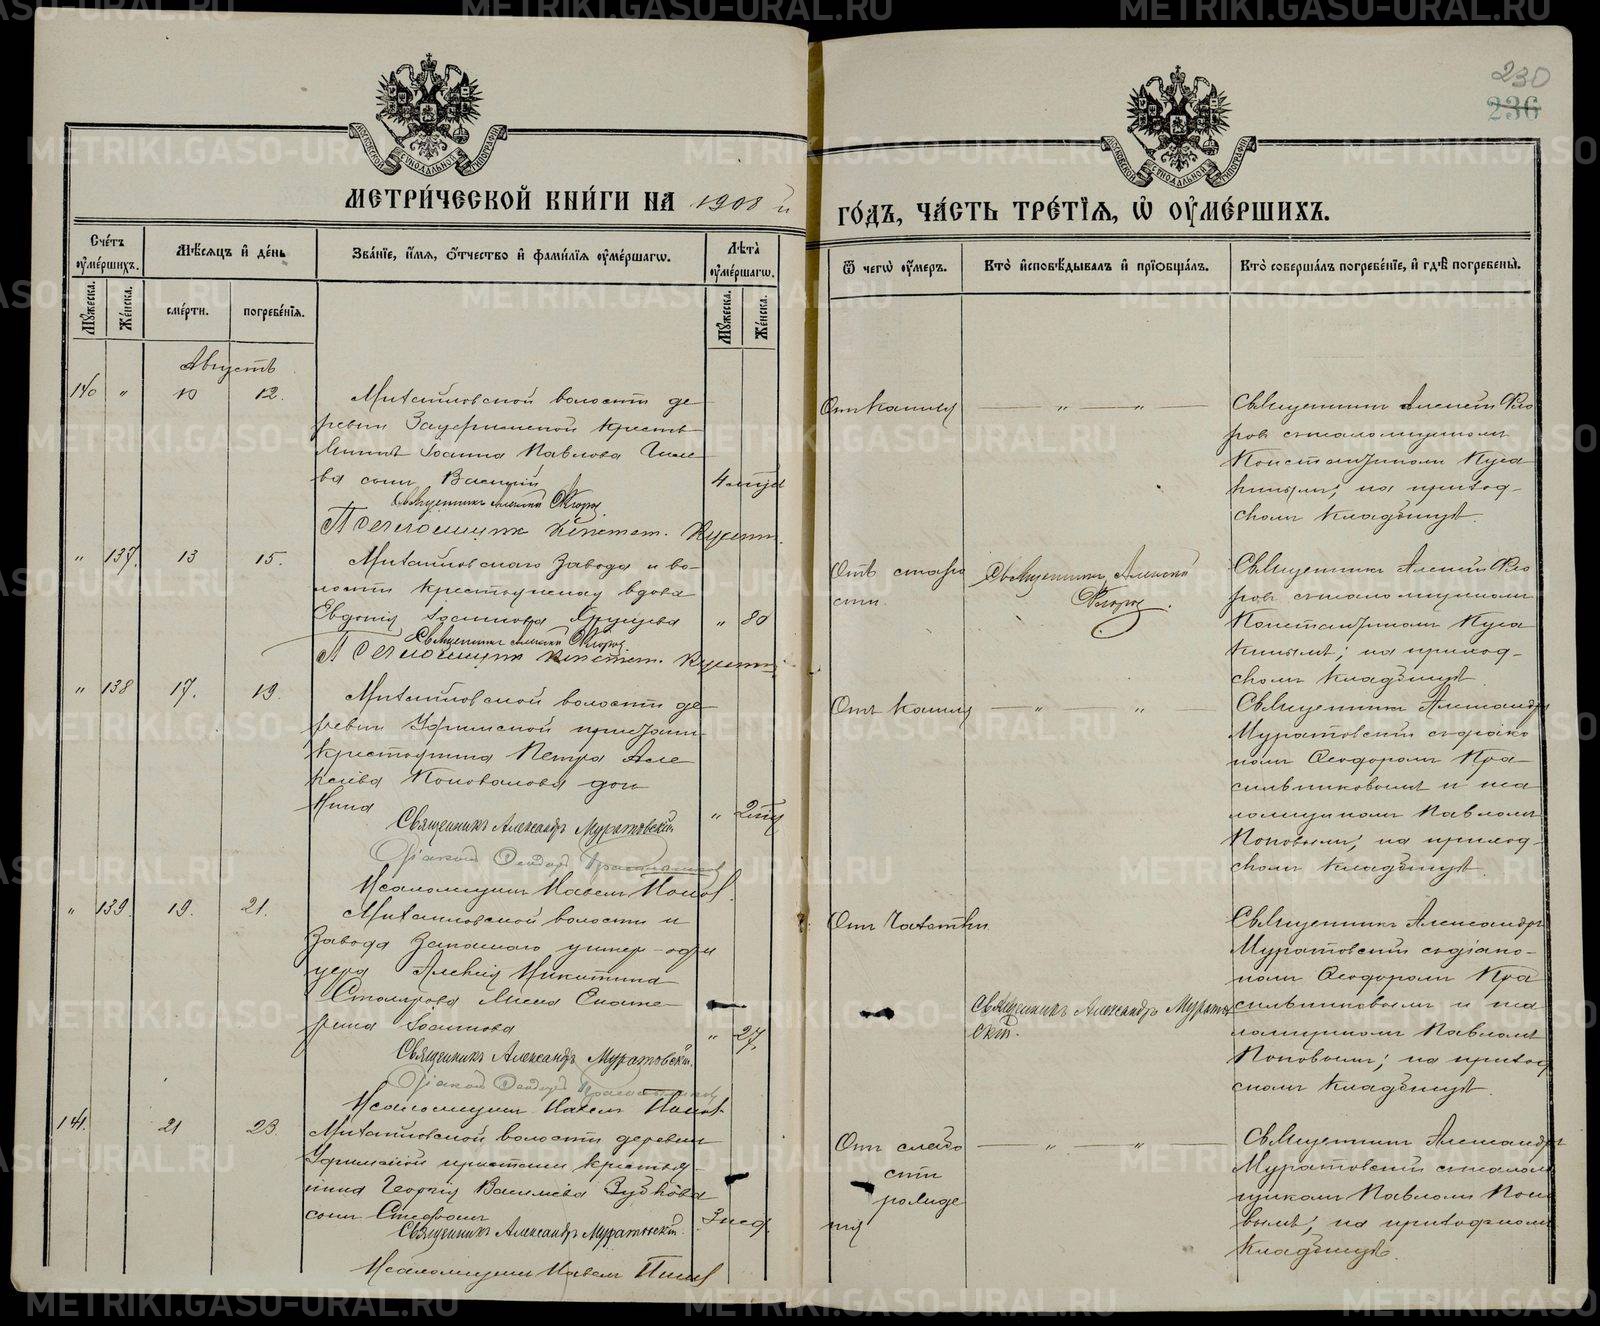 230
236
МЕТРИ́ЧЕСКОЙ КНИ́ГИ НА 1908 й
ГО́ДЪ, ЧА́СТЬ ТРЕ́ТІѦ, Ѡ ОУМЕ́РШИХЪ.
Сче́тъ оуме́ршихъ.
Мѣ́сяцъ и де́нь
Зва́ніе, и́мя, о́тчество и фами́лія оуме́ршагѡ.
Лѣта̀ оуме́ршагѡ.
Ѿ чегѡ̀ оу́меръ.
Кто̀ исповѣ́дывалъ и пріобща́лъ.
Кто̀ соверша́лъ погребе́ніе, и гдѣ̀ погребены̀.
Му́жеска.
Же́нска.
сме́рти.
погребе́нія.
Му́жеска.
Же́нска.
Августъ
140 " 10 12.
Михайловской волости де
ревни
Іоанна Павлова
ва сынъ Василій
Священникъ Алексій Флоровъ
Псаломщикъ Констан.
От кашля
Священникъ Алексій Фло
ровъ съ псаломщикомъ
Константиномъ
на приход-
скомъ кладбищѣ.
" 137. 13 15.
Михайловскаго Завода и во-
лости крестьянская вдова
Евдокія Іоаннова
" 80
Священникъ Алексій Флоровъ
Псаломщикъ Констан.
Отъ старо
сти.
Священникъ Алексій
Флоровъ.
Священникъ Алексій Фло
ровъ съ псаломщикомъ
Константиномъ
на приход-
скомъ кладбищѣ.
" 138 17. 19.
Михайловской волости де
ревни Уфимской пристани
крестьянина Петра Але
ксѣева Коновалова дочь
Нина
Священникъ Александръ Муратовскій
Діаконъ Ѳеодоръ Красильниковъ
Псаломщикъ Павелъ Поповъ.
От кашля
Священникъ Александръ
Муратовскій съ діако
номъ Ѳеодоромъ Кра-
сильниковымъ и пса
ломщикомъ Павломъ
Поповымъ; на приход-
скомъ кладбищѣ.
" 139. 19. 21.
Михайловской волости и
Завода Запаснаго унтер-офи
цера Алексія Никитина
Столярова жена Екате-
рина Іоаннова
" 27.
Священникъ Александръ Муратовскій.
Діаконъ Ѳеодоръ Красильниковъ
Псаломщикъ Павелъ Поповъ
От Чахотки
Священникъ Александръ Муратов
скій.
Священникъ Александръ
Муратовскій съ діако-
номъ Ѳеодоромъ Кра
сильниковымъ и пса
ломщикомъ Павломъ
Поповымъ; на приход
скомъ кладбищѣ.
141. 21 23.
Михайловской волости деревни
Уфимской пристани крестья-
нина Георгія Васильева Зубкова
сынъ Стефанъ
3 нед.
Священникъ Александръ Муратовскій.
Псаломщикъ Павелъ Поповъ
От слабо
сти
рожде
нія
Священникъ Александръ
Муратовскій с псалом
щикомъ Павломъ Попо
вымъ; на приходском
кладбищѣ.
METRIKI.GASO-URAL.RU